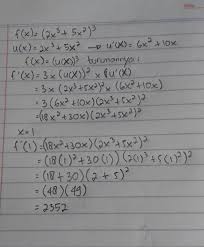 f(x) = (2x³ + 5x²)³
u(x) = 2x³ + 5x² → u'(x) = 6x² + 10x
f(x) = (u(x))³ turunannya :
f'(x) = 3 x (u(x))² x u'(x)
= 3 x (2x³ + 5x²)² x (6x² + 10x)
= 3 (6x² + 10x) (2x³ + 5x²)²
= (18x² + 30x) (2x³ + 5x²)²
x = 1
f'(1) = (18x² + 30x) (2x³ + 5x²)²
= (18(1)² + 30(1)) (2(1)³ + 5(1)²)²
= (18 + 30) (2 + 5)²
= (48) (49)
= 2352